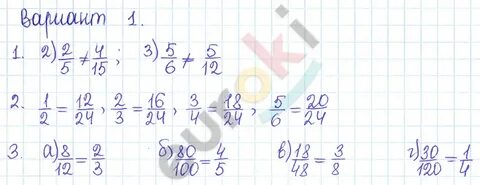 Вариант 1.
1. 2) 2/5 ≠ 4/15 ; 3) 5/6 ≠ 5/12
2. 1/2 = 12/24, 2/3 = 16/24, 3/4 = 18/24, 5/6 = 20/24
3. а) 8/12 = 2/3 б) 80/100 = 4/5 в) 18/48 = 3/8 г) 30/120 = 1/4
euroki